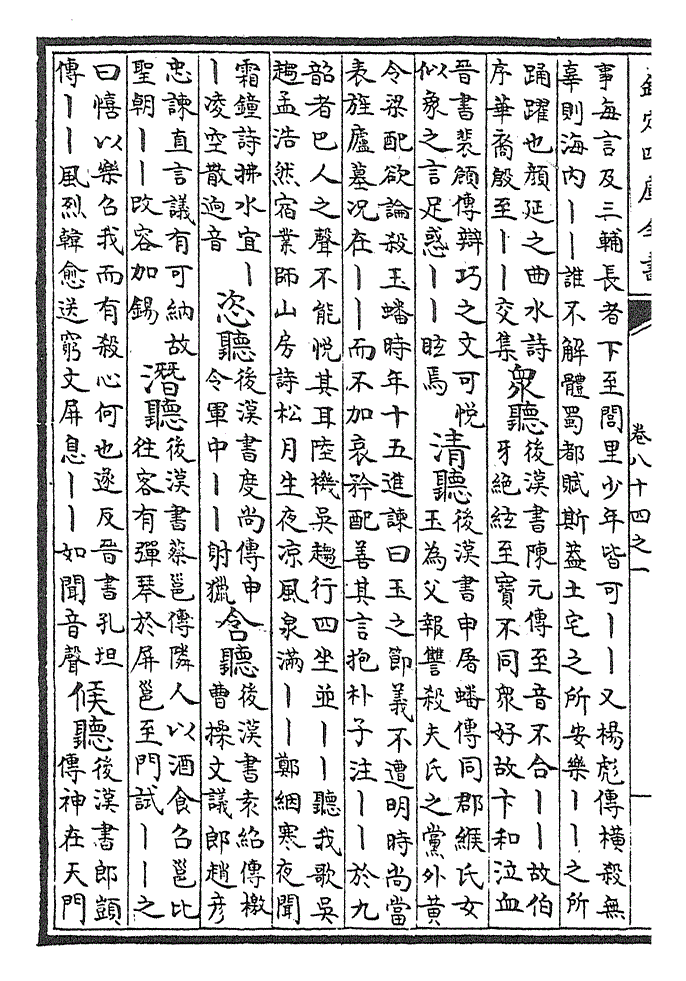 欽定四庫全書
卷八十四之一
事每言及三輔長者下至閭里少年皆可丨丨又楊彪傳橫殺無
辜則海内丨丨誰不解體蜀都賦斯葢土宅之所安樂丨丨之所
踊躍也顔延之曲水詩
序華裔殷至丨丨交集
衆聽
後漢書陳元傳至音不合丨丨故伯
牙絶絃至寶不同衆好故卞和泣血
晉書裴頠傳辯巧之文可悅
似象之言足惑丨丨眩焉
清聽
後漢書申屠蟠傳同郡緱氏女
玉為父報讐殺夫氏之黨外黄
令梁配欲論殺玉蟠時年十五進諫曰玉之節義不遭明時尚當
表旌廬墓況在丨丨而不加哀矜配善其言抱朴子注丨丨於九
韶者巴人之聲不能悅其耳陸機吳趨行四坐並丨丨聽我歌吳
趨孟浩然宿業師山房詩松月生夜凉風泉滿丨丨鄭絪寒夜聞
霜鐘詩拂水宜丨
丨凌空散逈音
恣聽
後漢書度尚傳申
令軍中丨丨射獵
含聽
後漢書袁紹傳檄
曹操文議郎趙彦
忠諫直言議有可納故
聖朝丨丨改容加錫
潛聽
後漢書蔡邕傳隣人以酒食召邕比
往客有彈琴於屏邕至門試丨丨之
曰憘以樂召我而有殺心何也遂反晉書孔坦
傳丨丨風烈韓愈送窮文屏息丨丨如聞音聲
候聽
後漢書郎顗
傳神在天門